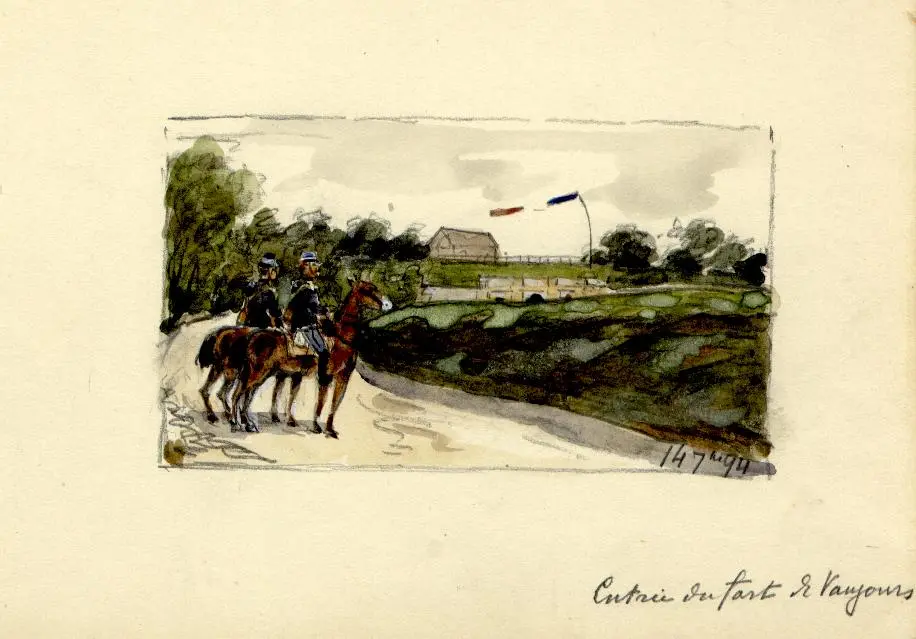 14 7bre 94
Entrée du fort de Vaujours